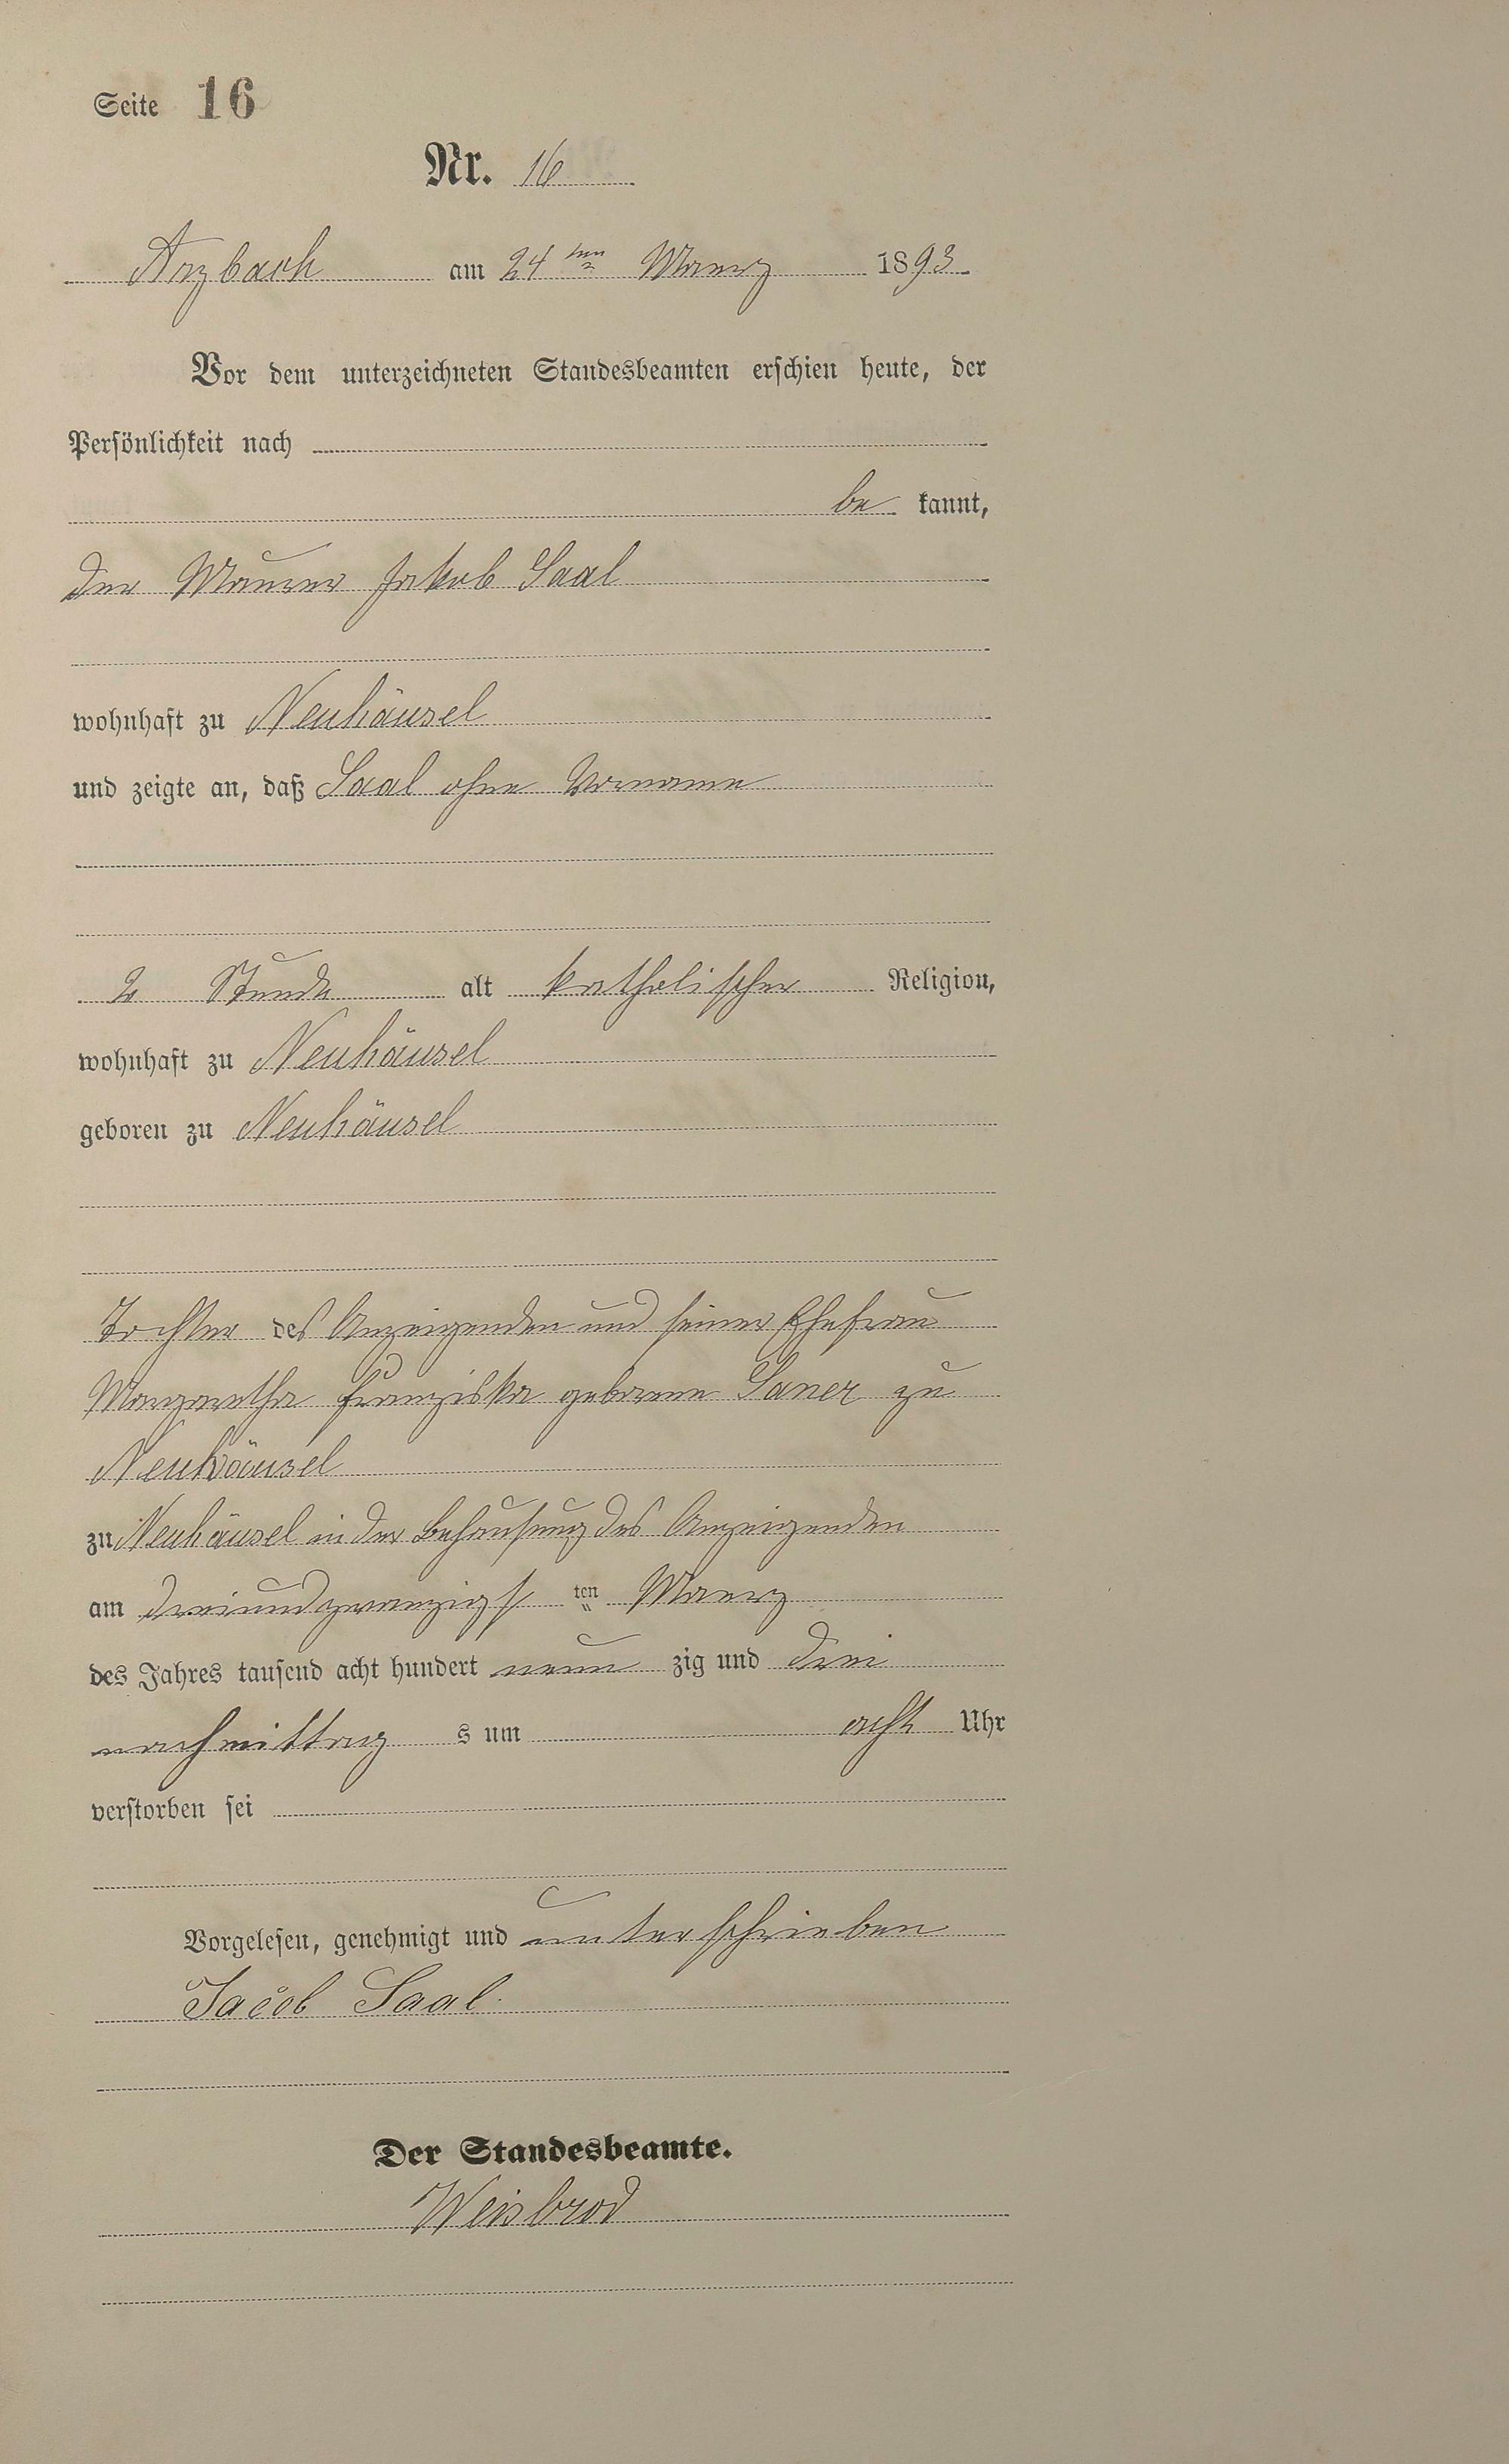 Seite 16
Nr. 16
Arzbach am 24ten Maerz 1893
Vor dem unterzeichneten Standesbeamten erschien heute, der
Persönlichkeit nach
be kannt,
der Maurer Jakob Saal
wohnhaft zu Neuhäusel
und zeigte an, daß Saal ohne Vorname
2 Stunde alt katholischer Religion,
wohnhaft zu Neuhäusel
geboren zu Neuhäusel
Tochter des Anzeigenden und seiner Ehefrau
Margaretha Franziska geborene Saner zu
Neuhäusel
zu Neuhäusel in der Behausung des Anzeigenden
am dreiundzwanzigst ten Maerz
des Jahres tausend acht hundert neun zig und drei
nachmittag s um acht Uhr
verstorben sei
Vorgelesen, genehmigt und unterschrieben
Jacob Saal.
Der Standesbeamte.
Weisbrod